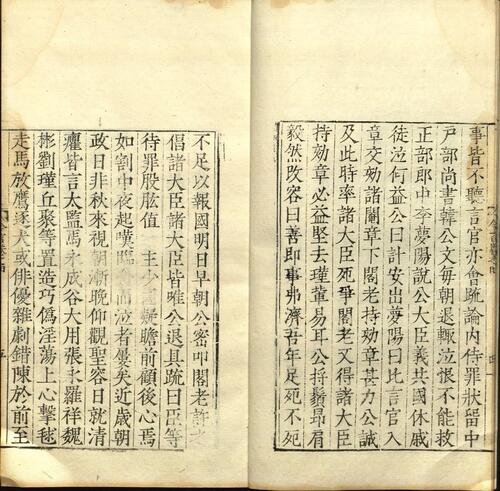 事皆不聽言官亦會疏論内侍罪狀留中
戸部尚書韓公文毎朝退輙泣恨不能救
正部郎中李夢陽說公大臣義共國休戚
徒泣何益公曰計安出夢陽曰比言官入
章交劾諸閹章下閣老持劾章甚力公誠
及此時率諸大臣死爭閣老又得諸大臣
持劾章必益堅去瑾軰易耳公捋鬚昻肩
毅然改容曰善即事弗濟吾年足死不死
不足以報國明日早朝公密叩閣老許之
倡諸大臣諸大臣皆唯公退具疏曰臣等
待罪股肱值主少國疑瞻前顧後心焉
如割中夜起嘆臨食而泣者屢矣近歲朝
政日非秋來視朝漸晚仰觀聖容日就清
癯皆言太監馬永成谷大用張永羅祥魏
彬劉瑾丘聚等置造巧僞淫蕩上心擊毬
走馬放鷹逐犬或俳優雜劇錯陳於前至